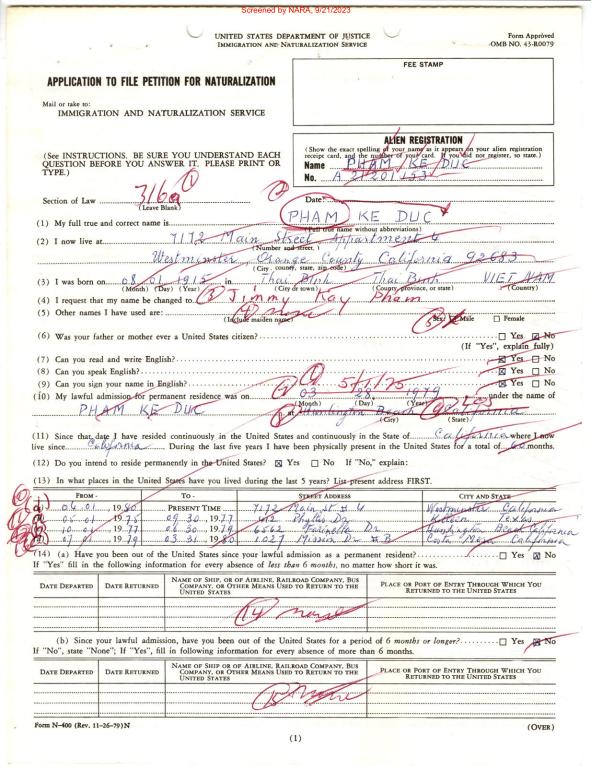 Screened by NARA, 9/21/2023
UNITED STATES DEPARTMENT OF JUSTICE
IMMIGRATION AND NATURALIZATION SERVICE
Form Approved
OMB NO. 43-R0079
FEE STAMP
APPLICATION TO FILE PETITION FOR NATURALIZATION
Mail or take to:
IMMIGRATION AND NATURALIZATION SERVICE
(See INSTRUCTIONS. BE SURE YOU UNDERSTAND EACH QUESTION BEFORE YOU ANSWER IT. PLEASE PRINT OR TYPE.)
ALIEN REGISTRATION
(Show the exact spelling of your name as it appears on your alien registration receipt card, and the number of your card. If you did not register, so state.)
Name PHAM KE DUC
No. A 21 201 153
Section of Law 316a
(Leave Blank)
Date:
(1) My full true and correct name is PHAM KE DUC
(Full true name without abbreviations)
(2) I now live at 7172 Main Street Appartment 4
(Number and street,)
Westminster, Orange County California 92683
(City, county, state, zip code)
(3) I was born on 08 01 1915 in Thai Binh Thai Binh VIET NAM
(Month) (Day) (Year) (City or town) (County, province, or state) (Country)
(4) I request that my name be changed to Jimmy Kay Pham
(5) Other names I have used are: none
(Include maiden name) Sex: ☒ Male ☐ Female
(6) Was your father or mother ever a United States citizen? ☐ Yes ☒ No
(If "Yes", explain fully)
(7) Can you read and write English? ☒ Yes ☐ No
(8) Can you speak English? ☒ Yes ☐ No
(9) Can you sign your name in English? ☒ Yes ☐ No
5/1/75
(10) My lawful admission for permanent residence was on 03 28 1979 under the name of
(Month) (Day) (Year)
PHAM KE DUC at Huntington Beach California
(City) (State)
(11) Since that date I have resided continuously in the United States and continuously in the State of California where I now
live since California. During the last five years I have been physically present in the United States for a total of 60 months.
(12) Do you intend to reside permanently in the United States? ☒ Yes ☐ No If "No," explain:
(13) In what places in the United States have you lived during the last 5 years? List present address FIRST.
FROM - TO - STREET ADDRESS CITY AND STATE
04 01, 1980 PRESENT TIME 7172 Main St # 4 Westminster California
05 01 1975 09 30, 1977 Phyllis Dr Texas
10 01 1977 06 30 1979 6562 Farinella Dr Huntington Beach California
07 01 1979 03 31 1980 1027 Mission Dr # B Costa Mesa California
(14) (a) Have you been out of the United States since your lawful admission as a permanent resident? ☐ Yes ☒ No
If "Yes" fill in the following information for every absence of less than 6 months, no matter how short it was.
DATE DEPARTED DATE RETURNED NAME OF SHIP, OR OF AIRLINE, RAILROAD COMPANY, BUS COMPANY, OR OTHER MEANS USED TO RETURN TO THE UNITED STATES PLACE OR PORT OF ENTRY THROUGH WHICH YOU RETURNED TO THE UNITED STATES
14 none
(b) Since your lawful admission, have you been out of the United States for a period of 6 months or longer? ☐ Yes ☒ No
If "No", state "None"; If "Yes", fill in following information for every absence of more than 6 months.
DATE DEPARTED DATE RETURNED NAME OF SHIP, OR OF AIRLINE, RAILROAD COMPANY, BUS COMPANY, OR OTHER MEANS USED TO RETURN TO THE UNITED STATES PLACE OR PORT OF ENTRY THROUGH WHICH YOU RETURNED TO THE UNITED STATES
none
Form N-400 (Rev. 11-26-79)N
(OVER)
(1)